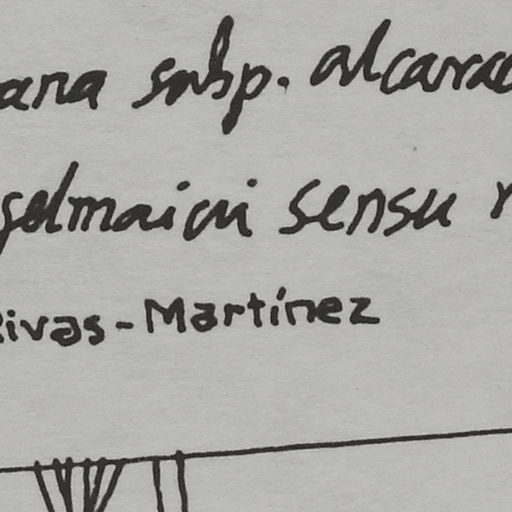 ana subp. alcarac
gelmaiai sensu r
Rivas-Martínez